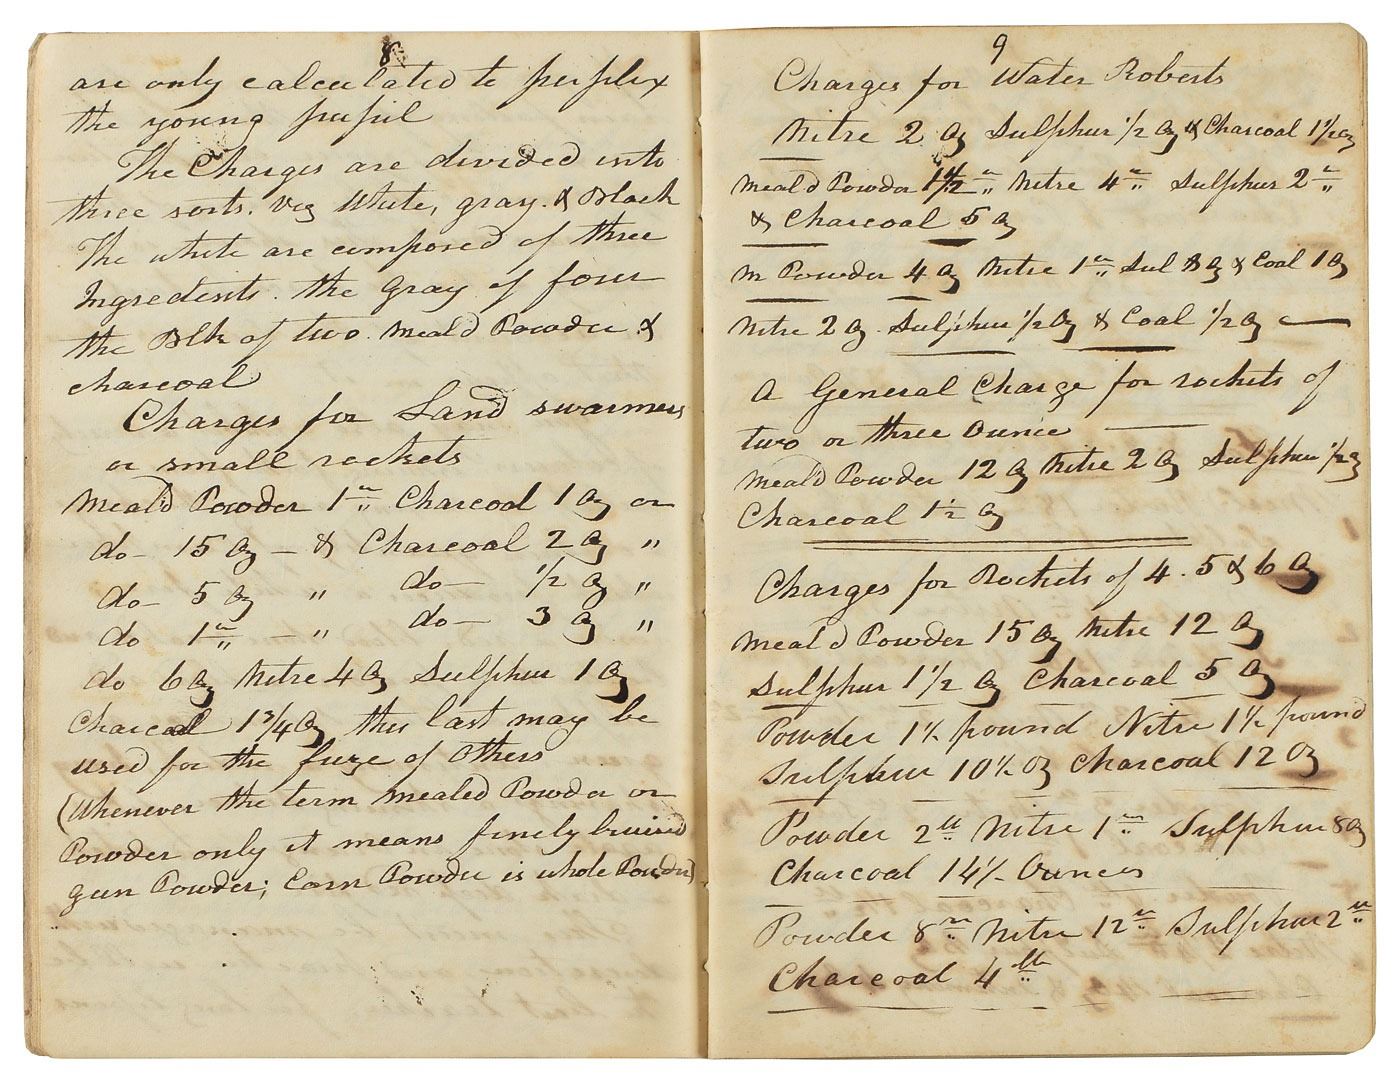 8
are only calculated to perplex
the young pupil
The Charges are divided into
three sorts. viz White, gray. & Black
The white are composed of three
Ingredients. the Gray of four
the Blk of two. Meal'd Powder &
charcoal
Charges for Land swarmers
or small rockets
Meal'd Powder 1 lb Charcoal 1 oz or
do - 15 oz - & Charcoal 2 oz "
do - 5 oz " do - 1/2 oz "
do 1 lb - " do - 3 oz "
do 6 oz Nitre 4 oz Sulphur 1 oz
Charcoal 1 3/4 oz this last may be
used for the fuze of Others
(Whenever the term mealed Powder or
Powder only it means finely bruised
gun Powder; Corn Powder is whole Powder)
9
Charges for Water Rockets
Nitre 2 oz Sulphur 1/2 oz & Charcoal 1 1/2 oz
Meal'd Powder lb Nitre 4 lb Sulphur 2 lb
& Charcoal 5 oz
M Powder 4 oz Nitre 1 lb Sul 8 oz & Coal 1 oz
Nitre 2 oz. Sulphur 1/2 oz & Coal 1/2 oz
A General Charge for rockets of
two or three Ounce
Meal'd Powder 12 oz Nitre 2 oz Sulphur 1/2 oz
Charcoal 1 1/2 oz
Charges for Rockets of 4. 5 & 6 oz
Meal'd Powder 15 oz Nitre 12 oz
Sulphur 1 1/2 oz Charcoal 5 oz
Powder 1 1/2 pound Nitre 1 1/2 pound
Sulphur 10 1/2 oz Charcoal 12 oz
Powder 2 lb Nitre 1 lb Sulphur 8 oz
Charcoal 14 1/2 Ounces
Powder 8 lb Nitre 12 lb Sulphur 2 lb
Charcoal 4 lb